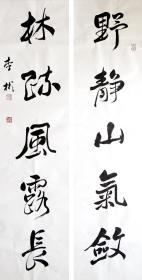 野静山氣斂
林疏風露長
李彬